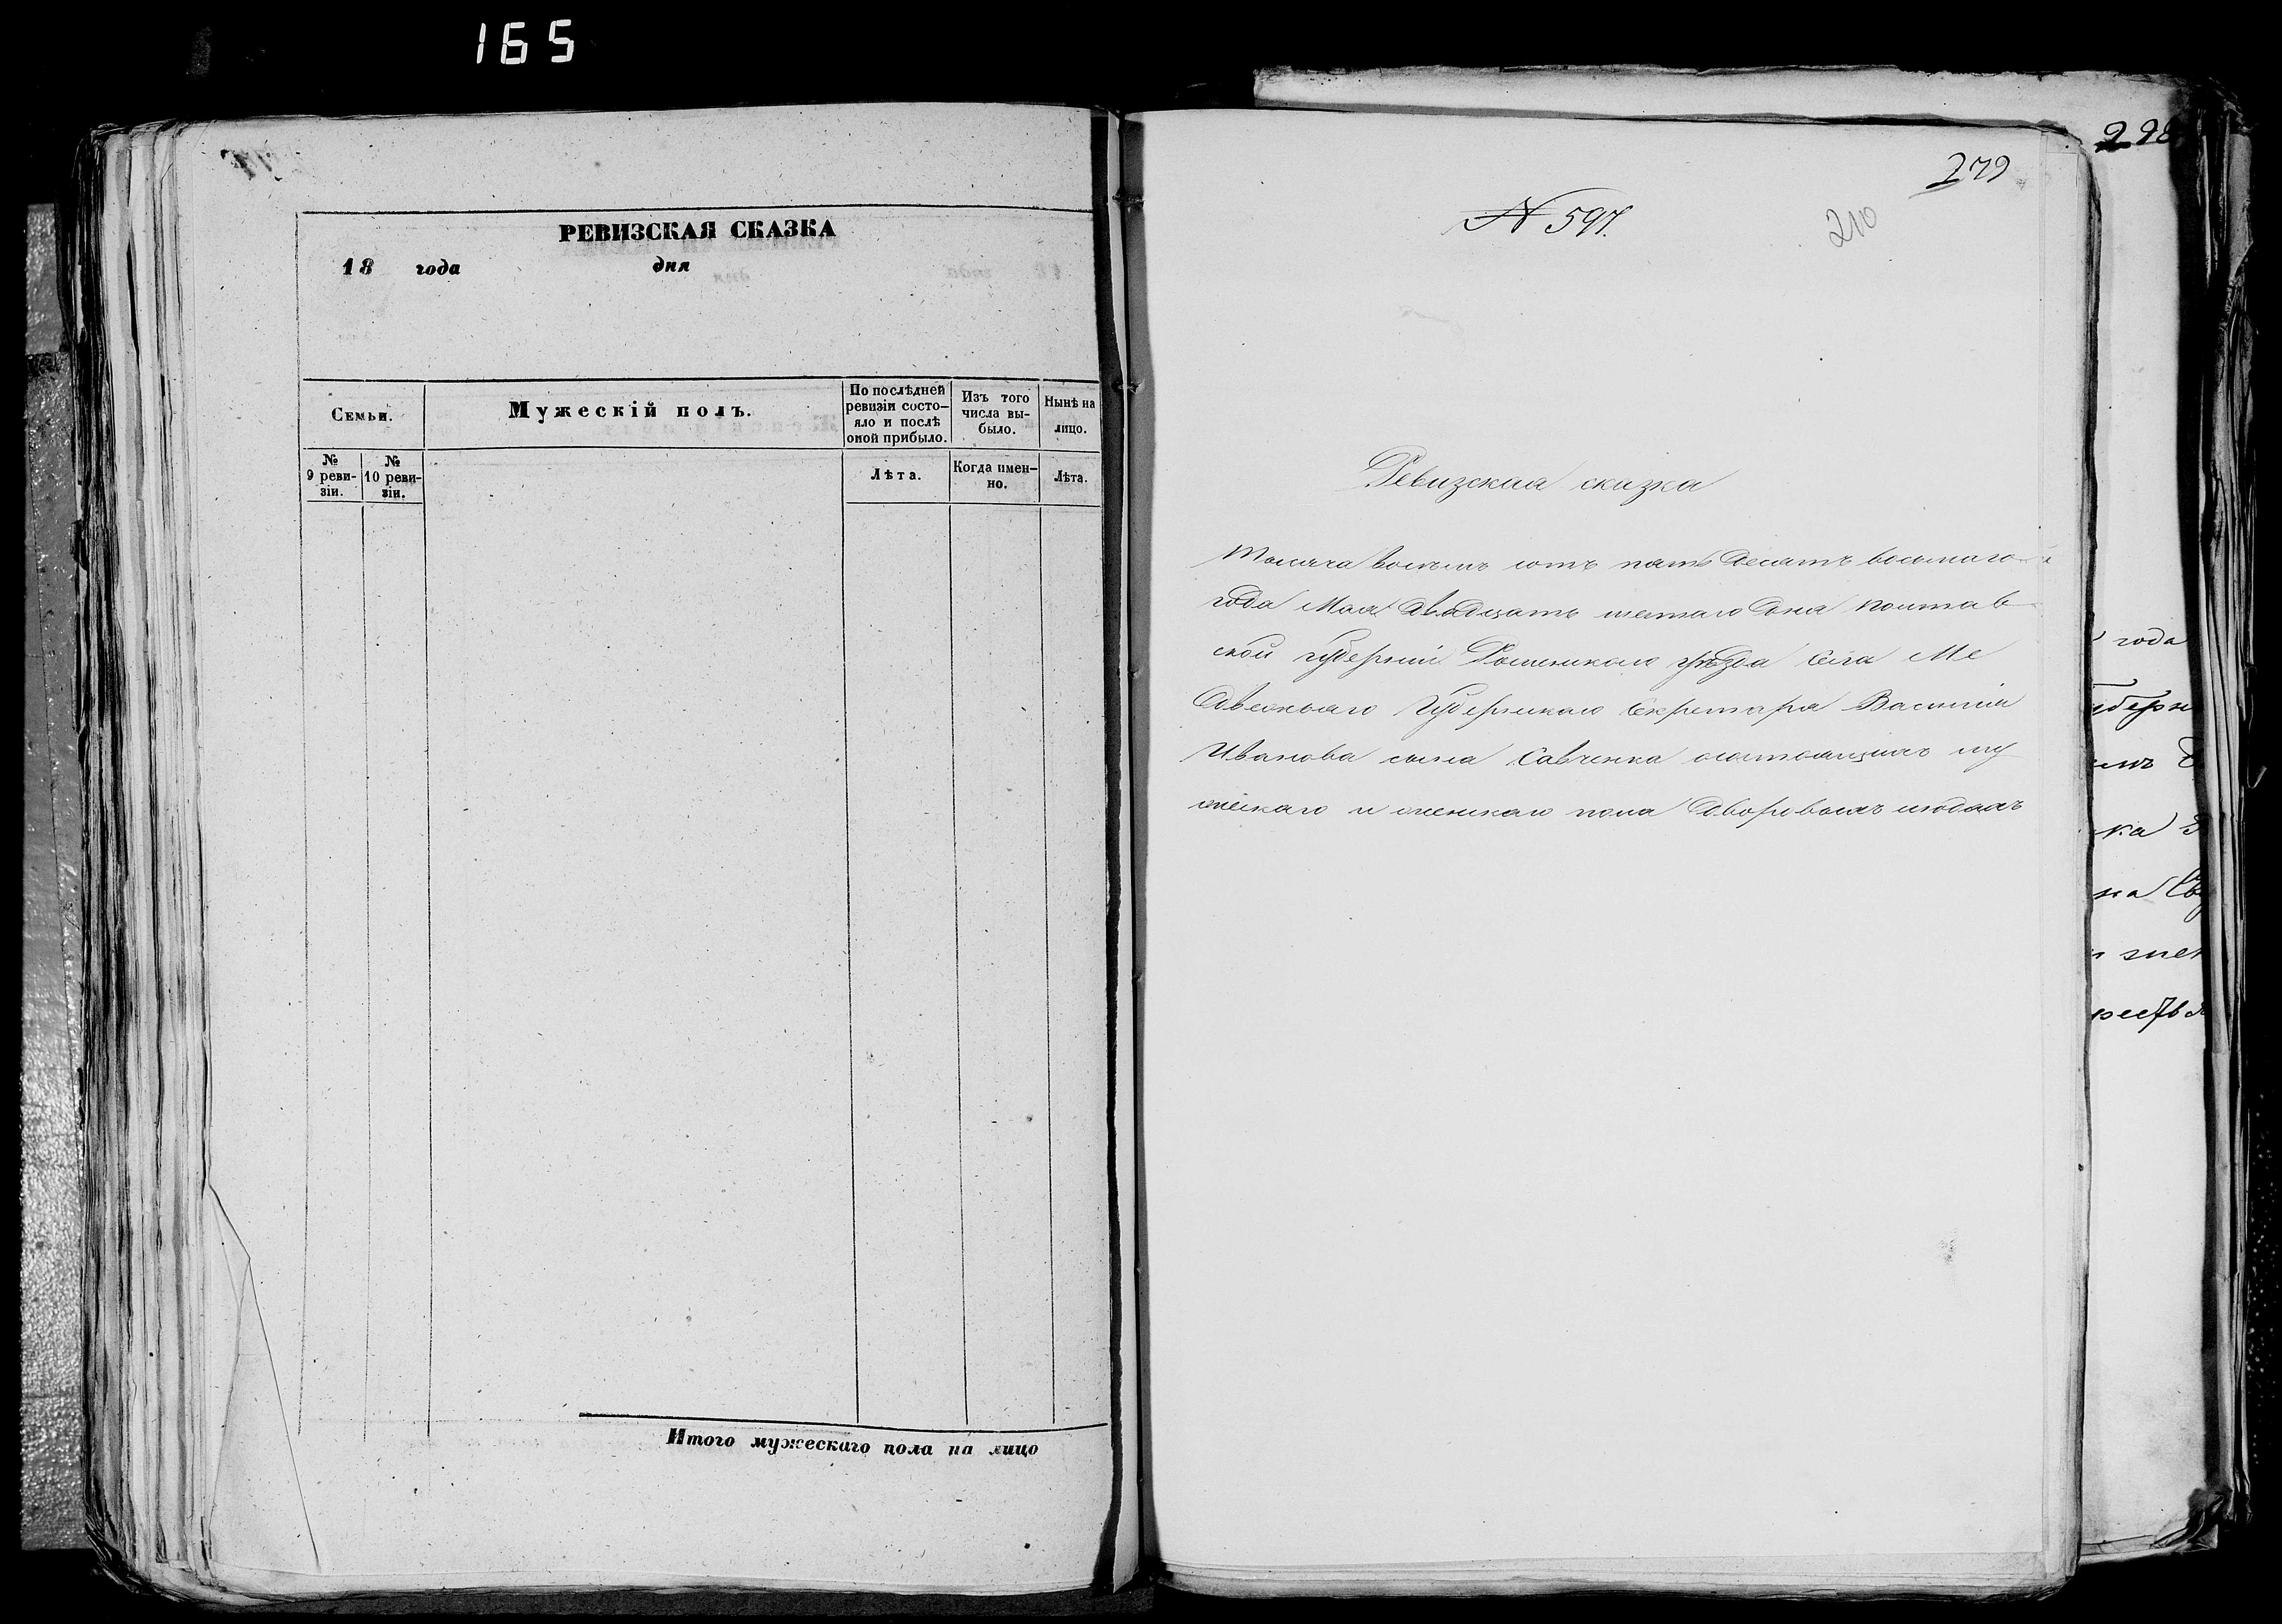 165
РЕВИЗСКАЯ СКАЗКА
18 года дня
Семьи.
Мужескій полъ.
По послѣдней ревизіи состо-
яло и послѣ оной прибыло.
Изъ того числа вы-
было.
Нынѣ на лицо.
№ 9 реви-
зіи.
№ 10 реви-
зіи.
Лѣта.
Когда имен-
но.
Лѣта.
Итого мужескаго пола на лицо
279
№ 597.
210
Ревизская сказка
Тысяча восемь сотъ пять десятъ восьмаго
года Мая двадцать шестаго дня Полтав
ской губерніи Роменскаго уѣзда села Ме
Губернскаго Секретаря Василія
Иванова сына Савченка о состоящихъ му
жескаго и женскаго пола дворовыхъ людяхъ
298
года